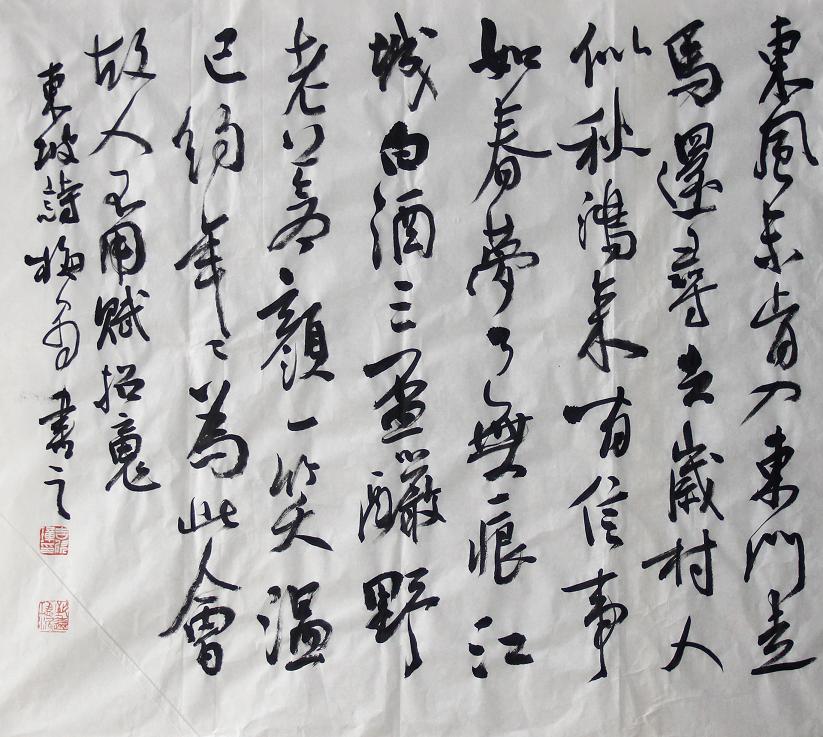 東風未肯入東門走
馬還尋去歲村人
似秋鴻來有信事
如春夢了無痕江
城白酒三盃釅野
老蒼顏一笑溫
已約年々為此會
故人不用賦招魂
東坡詩梅書之